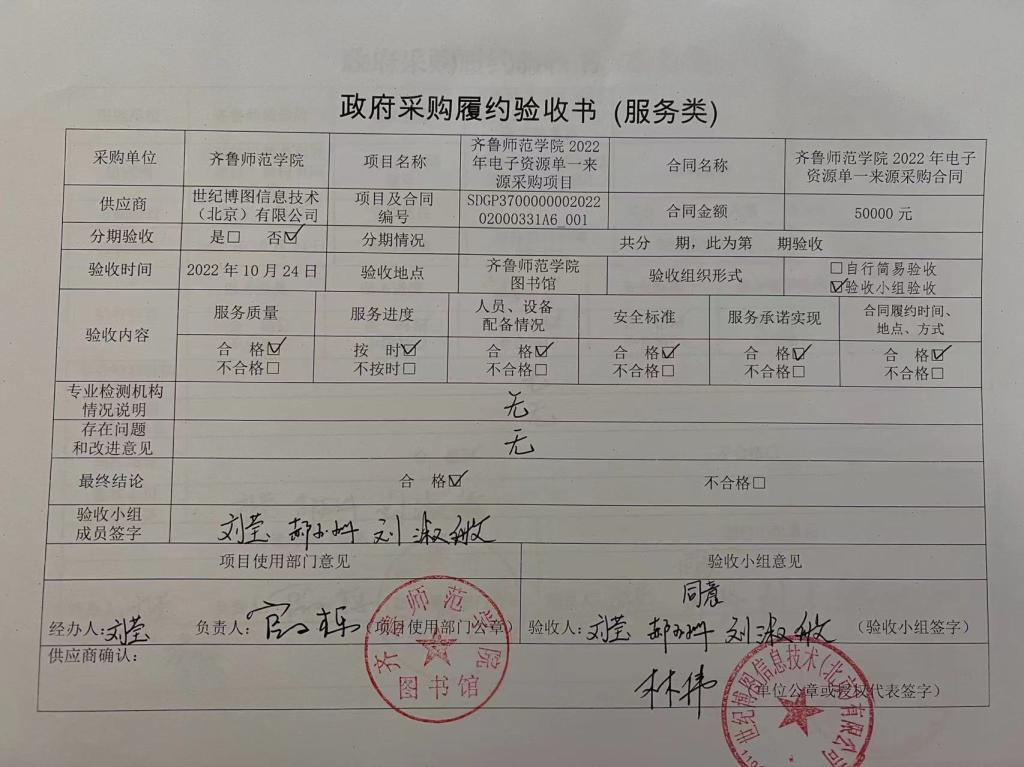 政府采购履约验收书（服务类）
采购单位 齐鲁师范学院 项目名称 齐鲁师范学院 2022
年电子资源单一来
源采购项目 合同名称 齐鲁师范学院 2022 年电子
资源单一来源采购合同
供应商 世纪博图信息技术
（北京）有限公司 项目及合同
编号 SDGP3700000002022
02000331A6_001 合同金额 50000 元
分期验收 是□ 否☑ 分期情况 共分 期，此为第 期验收
验收时间 2022 年 10 月 24 日 验收地点 齐鲁师范学院
图书馆 验收组织形式 □自行简易验收
☑验收小组验收
验收内容 服务质量 服务进度 人员、设备
配备情况 安全标准 服务承诺实现 合同履约时间、
地点、方式
合 格☑ 按 时☑ 合 格☑ 合 格☑ 合 格☑ 合 格☑
不合格□ 不按时□ 不合格□ 不合格□ 不合格□ 不合格□
专业检测机构
情况说明 无
存在问题
和改进意见 无
最终结论 合 格☑ 不合格□
验收小组
成员签字 刘莹 刘淑敏
项目使用部门意见 验收小组意见
同意
经办人：刘莹 负责人： （项目使用部门公章） 验收人：刘莹 刘淑敏 （验收小组签字）
供应商确认：
林伟 （单位公章或授权代表签字）
齐鲁师范学院
图书馆
世纪博图信息技术（北京）有限公司